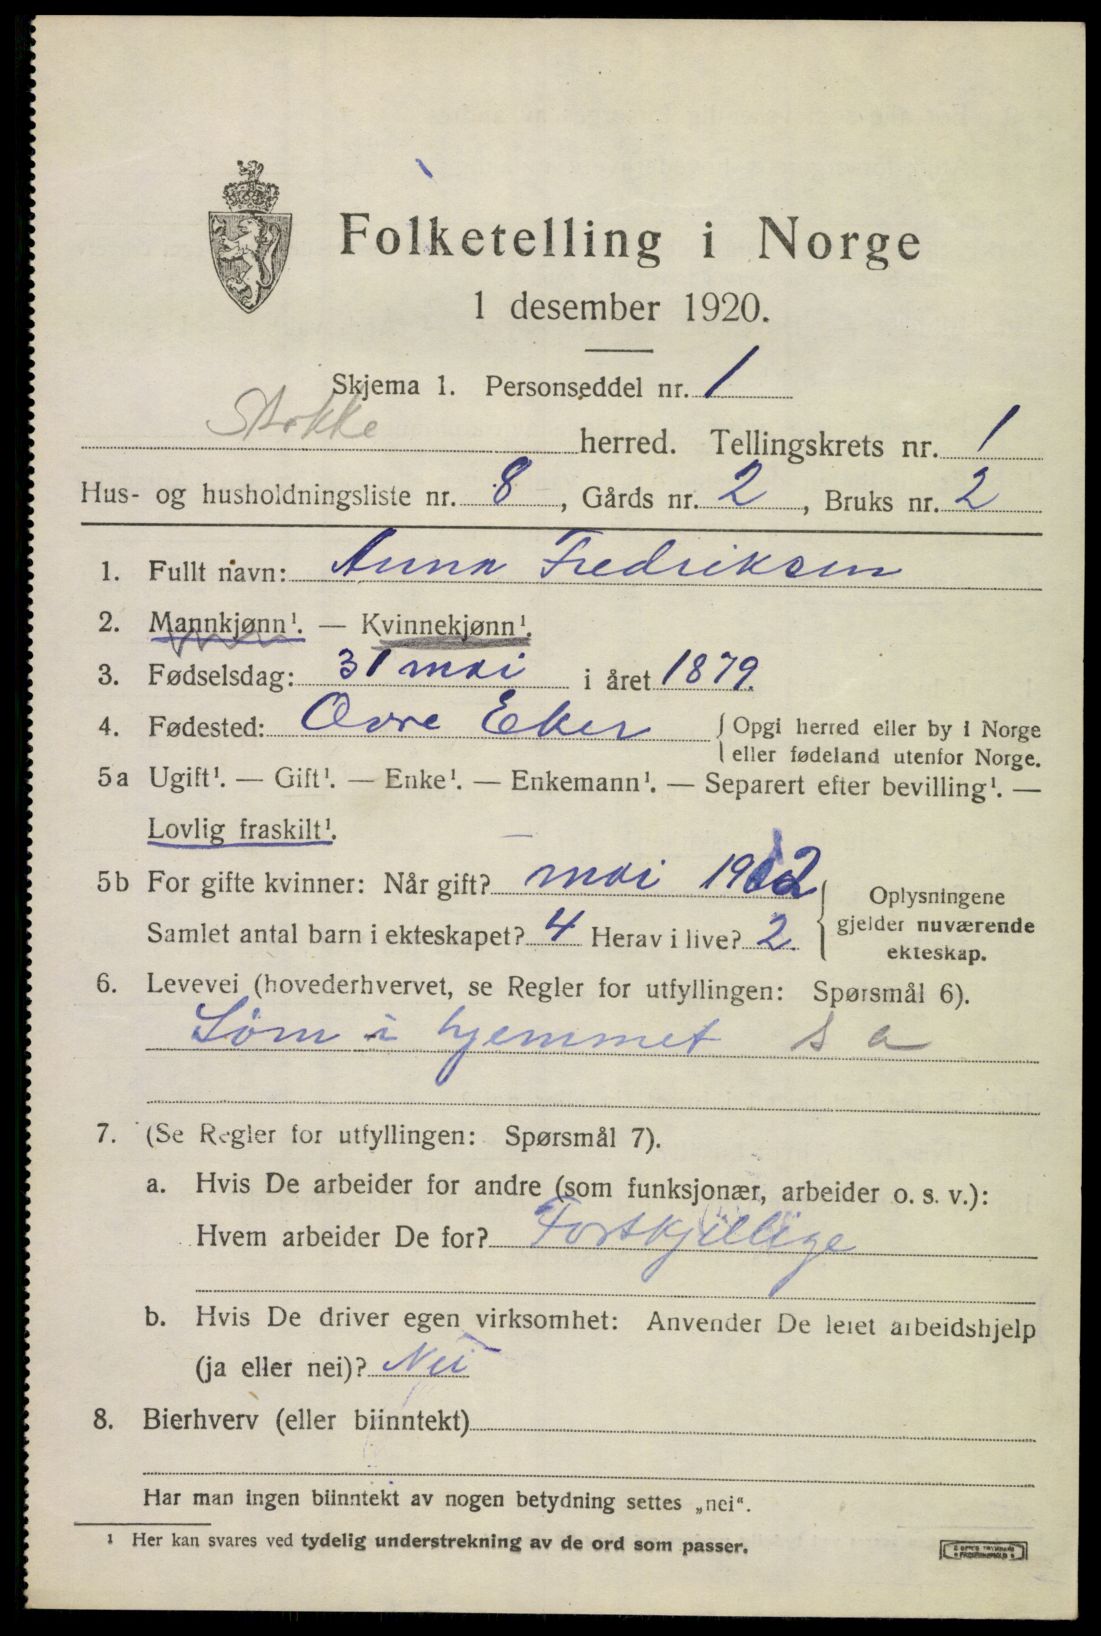 Folketelling i Norge
1 desember 1920.
Skjema 1. Personseddel nr. 1
Stokke herred. Tellingskrets nr. 1
Hus- og husholdningsliste nr. 8, Gårds nr. 2, Bruks nr. 2
1. Fullt navn: Anna Fredriksen
2. Mannkjønn¹. — Kvinnekjønn¹.
3. Fødselsdag: 31 mai i året 1879.
4. Fødested: Øvre Eker { Opgi herred eller by i Norge
eller fødeland utenfor Norge.
5a Ugift¹. — Gift¹. — Enke¹. — Enkemann¹. — Separert efter bevilling¹. —
Lovlig fraskilt¹.
5b For gifte kvinner: Når gift? mai 1902 } Oplysningene
Samlet antal barn i ekteskapet? 4 Herav i live? 2. gjelder nuværende
ekteskap.
6. Levevei (hovederhvervet, se Regler for utfyllingen: Spørsmål 6).
Søm i hjemmet s a
7. (Se Regler for utfyllingen: Spørsmål 7).
a. Hvis De arbeider for andre (som funksjonær, arbeider o. s. v.):
Hvem arbeider De for? Forskjellige
b. Hvis De driver egen virksomhet: Anvender De leiet arbeidshjelp
(ja eller nei)? Nei
8. Bierhverv (eller biinntekt)
Har man ingen biinntekt av nogen betydning settes „nei“.
¹ Her kan svares ved tydelig understrekning av de ord som passer.